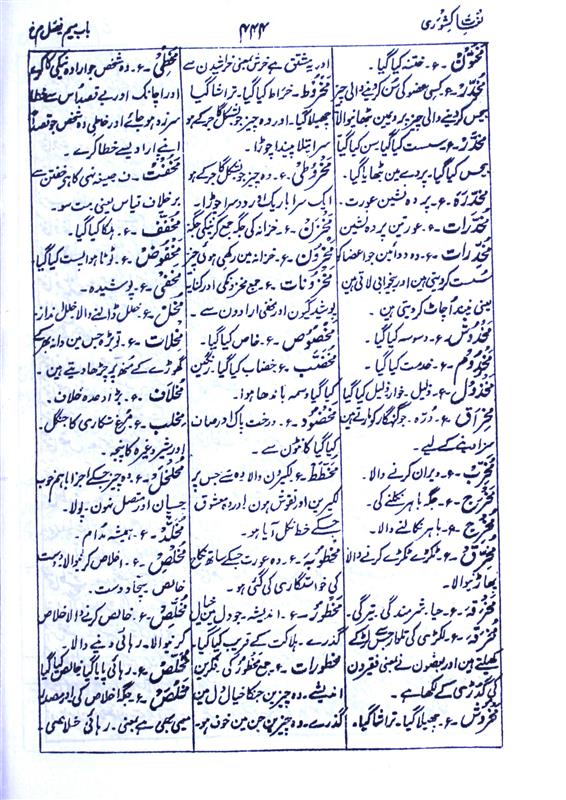 لغات کشوری
۴۴۴
باب میم فصل خ
مختون - ع - ختنہ کیا گیا۔
مخدر - ع - کسی عضو کی سن کر دینے والی چیز
بیحس کر دینے والی چیز پردہ میں بٹھانیوالا
مخدر - ع - سست کیا گیا سن کیا گیا
بیحس کیا گیا۔ پردے میں بٹھایا گیا۔
مخدرہ - ع - پردہ نشین عورت۔
مخدرات - ع - عورتیں پردہ نشین
مخدرات - ع - وہ دوائیں جو اعضا کو
سست کر دیتی ہیں اور بیخوابی لاتی ہیں
یعنی نیند اُچاٹ کر دیتی ہیں۔
مخدوش - ع - وسوسہ کیا گیا۔
مخدوم - ع - خدمت کیا گیا۔
مخذول - ع - ذلیل۔ خوار ذلیل کیا گیا
مخراق - ع - دُرّہ۔ جو گنہگار کو مارتے ہیں
سزا دینے کے لیے۔
مخرب - ع - ویران کرنے والا۔
مخرج - ع - جگہ باہر نکلنے کی۔
مخرج - ع - باہر نکالنے والا۔
مخرق - ع - ٹکڑے ٹکڑے کرنے والا
پھاڑنیوالا۔
مخرقہ - ع - حیا۔ شرمندگی۔ تیرگی۔
مخرقہ - ع - لکڑی کی تلوار جس سے لڑکے
کھیلتے ہیں اور بعضوں نے بمعنی فقیروں
کی گدڑی کے لکھا ہے۔
مخروش - ع - چھیلا گیا۔ تراشا گیا۔
اور یہ مشتق ہے خرش بمعنی خراشیدن سے
مخروط - ع - خراط کیا گیا۔ تراشا گیا
چھیلا گیا۔ اور وہ چیز جو بشکل گاجر کے ہو
سرا پتلا پیندا چوڑا۔
مخروطی - ع - وہ چیز جو بشکل گاجر کے ہو
ایک سرا باریک اور دوسرا چوڑا۔
مخزن - ع - خزانہ کی جگہ جمع کرنیکی جگہ
مخزون - ع - خزانہ میں رکھی ہوئی چیز
مخزونات - ع - جمع مخزون کی اور کنایہ
پوشیدگیوں اور مخفی ارادوں سے۔
مخصوص - ع - خاص کیا گیا۔
مخضب - ع - خضاب کیا گیا۔ رنگین
کیا گیا وسمہ باندھا ہوا۔
مخضود - ع - درخت پاک اور صاف
کیا گیا کانٹوں سے۔
مخطط - ع - لکیروں والا وہ شے جس پر
لکیریں اور نقوش ہوں اور وہ معشوق
جسکے خط نکل آیا ہو۔
مخطوبہ - ع - وہ عورت جسکے ساتھ نکاح
کی خواستگاری کی گئی ہو۔
مخطور - ع - اندیشہ۔ جو دل میں خیال
گذرے۔ ہلاکت کے قریب کیا گیا۔
مخطورات - ع - جمع مخطور کی۔
اندیشے۔ وہ چیزیں جنکا خیال دل میں
گذرے۔ وہ چیزیں جن میں خوف ہو۔
مخطی - ع - وہ شخص جو ارادہ نیکی کا کرے
اور اچانک اور بے قصد اُس سے خطا
سرزد ہو جائے اور خاطی وہ شخص جو قصداً
اپنے ارادے سے خطا کرے۔
مخفت - ف - صیغہ نہی کا ہے خفتن سے
برخلاف قیاس یعنی مت سو۔
مخفف - ع - ہلکا کیا گیا۔
مخفوض - ع - دبا ہوا پست کیا گیا
مخفی - ع - پوشیدہ۔
مخل - ع - خلل ڈالنے والا خلل انداز۔
مخلات - ع - توبڑہ جس میں دانہ بھر کے
گھوڑے کے منہ پر چڑھا دیتے ہیں۔
مخلاف - ع - بڑا وعدہ خلاف۔
مخلب - ع - مرغ شکاری کا چنگل۔
اور شیر وغیرہ کا پنجہ۔
مخلخل - ع - وہ چیز جسکے اجزا باہم خوب
چسپاں اور متصل نہوں۔ پولا۔
مخلد - ع - ہمیشہ مدام۔
مخلص - ع - اخلاص کرنیوالا دوست
خالص سچا دوست۔
مخلص - ع - خالص کرنے والا خلاص
کرنیوالا۔ رہائی دینے والا۔
مخلص - ع - رہائی پایا گیا خالص کیا گیا
مخلص - ع - جگہ اخلاص کی اور مصدر
میمی بھی ہے یعنی۔ رہائی خلاصی۔